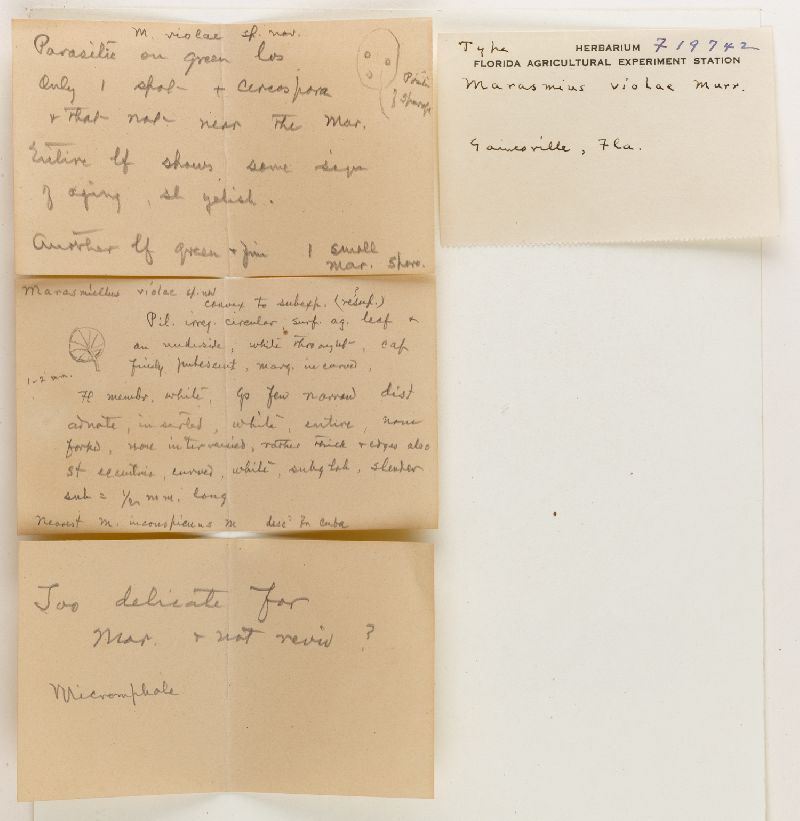 M. violae sp. nov.
Parasitic on green lvs
Only 1 spot + Cercospora
+ that not near the Mar.
Entire lf shows some sign
of aging, sl yelish.
Another lf green + fine 1 small
Mar. sporo.
Marasmiellus violae sp. nov
convex to subexp. (resup.)
Pil. irreg. circular, surf. ag. leaf +
on underside, white throught, cap
finely pubescent, marg. incurved,
1-2 mm.
Fl membr. white, Gs few narrow dist
adnate, inserted, white, entire, none
forked, none interveined, rather thick + edges also
St eccentric, curved, white, subglab, slender
sub = 1/2 mm. long
Nearest M. inconspicuus M desc fr Cuba
Too delicate for
Mar. + not reviv ?
Micromphale
Type HERBARIUM F19742
FLORIDA AGRICULTURAL EXPERIMENT STATION
Marasmius violae Murr.
Gainesville, Fla.